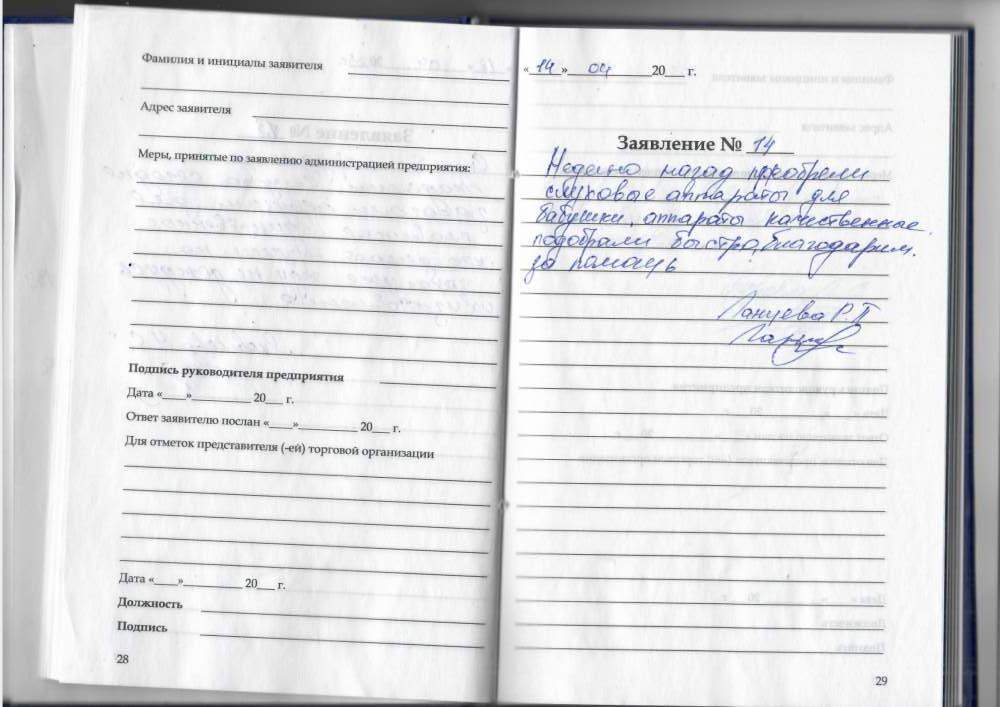 Фамилия и инициалы заявителя
Адрес заявителя
Меры, принятые по заявлению администрацией предприятия:
Подпись руководителя предприятия
Дата «____»__________ 20___ г.
Ответ заявителю послан «____»__________ 20___ г.
Для отметок представителя (-ей) торговой организации
Дата «____»__________ 20___ г.
Должность
Подпись
28
«14» 04 20___ г.
Заявление № 14
Неделю назад приобрели
слуховые аппараты для
бабушки, аппараты качественные.
подобрали быстро, благодарим.
за помощь
Ланцева Р.П
29